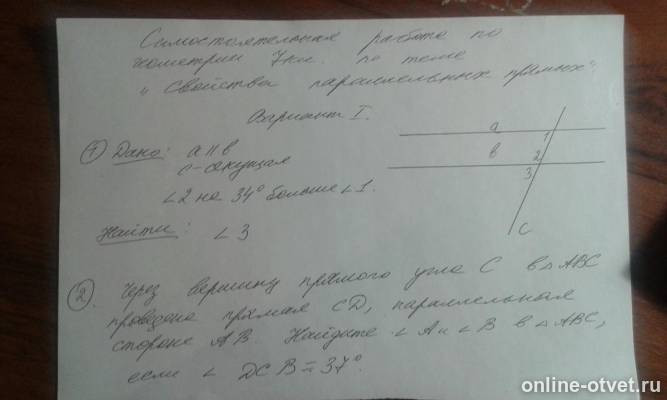 Самостоятельная работа по
геометрии 7 кл. по теме
"Свойства параллельных прямых".
Вариант I.
① Дано: a || b
c - секущая
∠2 на 34° больше ∠1.
Найти: ∠3
a
b
1
2
3
c
② Через вершину прямого угла C в △ABC
проведена прямая CD, параллельная
стороне AB. Найдите ∠A и ∠B в △ABC,
если ∠DCB = 37°.
online-otvet.ru